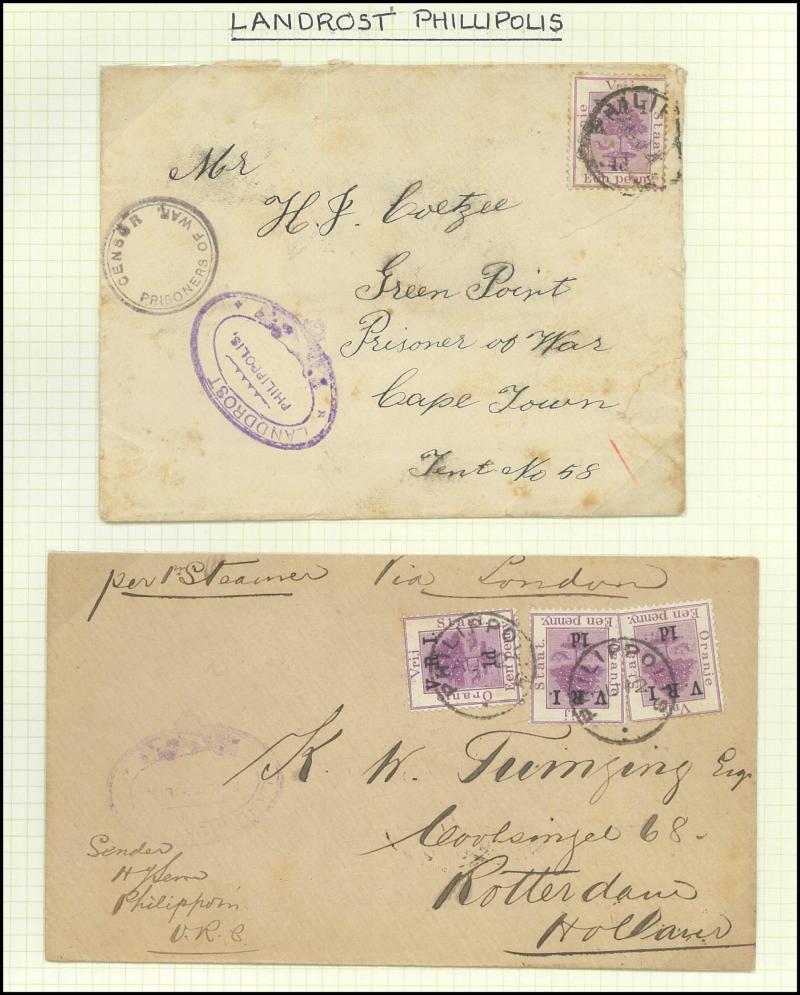 LANDROST PHILLIPOLIS
Mr
H. J. Coetzee
Green Point
Prisoner of War
Cape Town
Tent No 58
CENSOR PRISONERS OF WAR
LANDDROST
PHILIPPOLIS,
Vrij
Staat
Een penny
1d
PHILIP
per Steamer Via London
Vrij Staat
Oranje
Een penny
V.R.I.
1d
PHILIPPO
Staat
Een penny.
V.R.I
1d
Oranje
Een penny.
V.R.I
1d
PHILIPPO S
K. W. Esq
Coolsingel 68.
Rotterdam
Holland
Sender
Philippolis